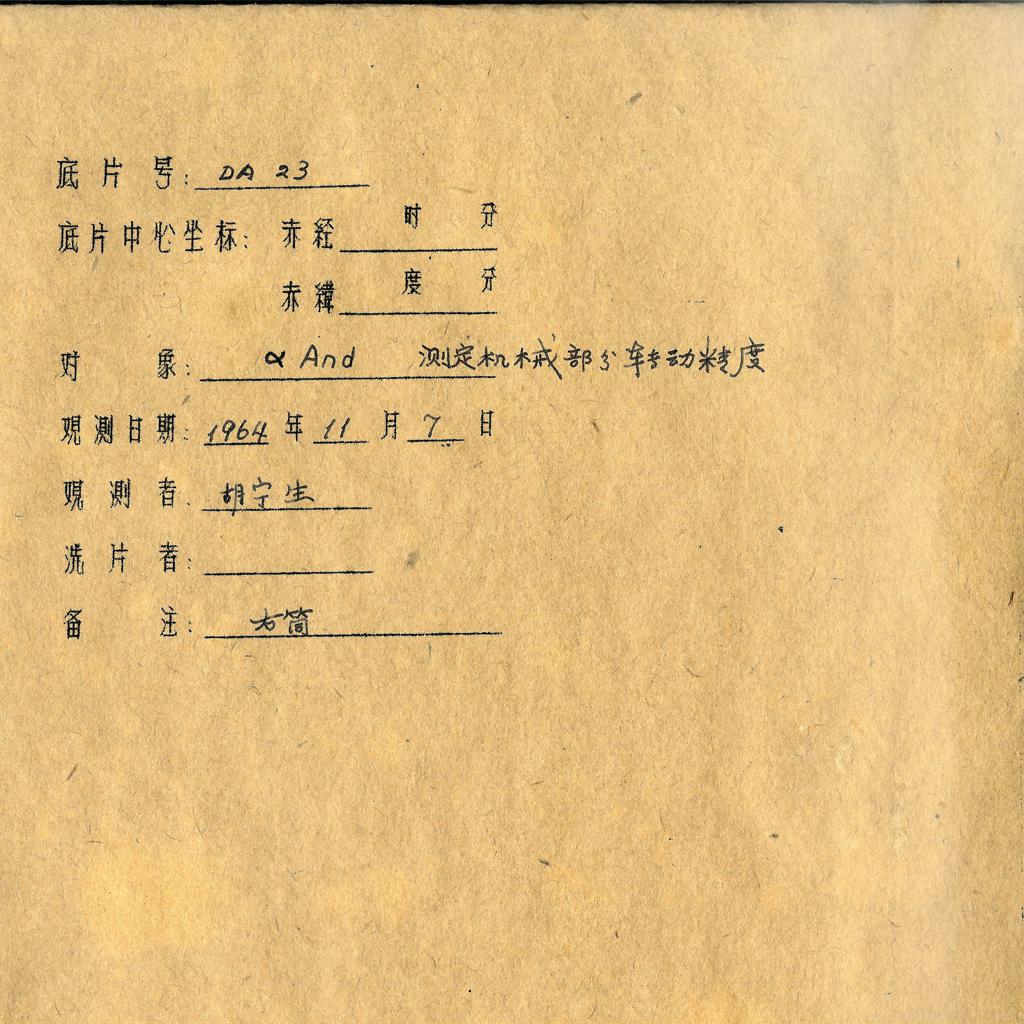 底片号: DA 23
底片中心坐标: 赤经 时 分
赤緯 度 分
对象: α And 测定机械部分转动精度
观测日期: 1964 年 11 月 7 日
观测者: 胡宁生
洗片者:
备注: 右筒